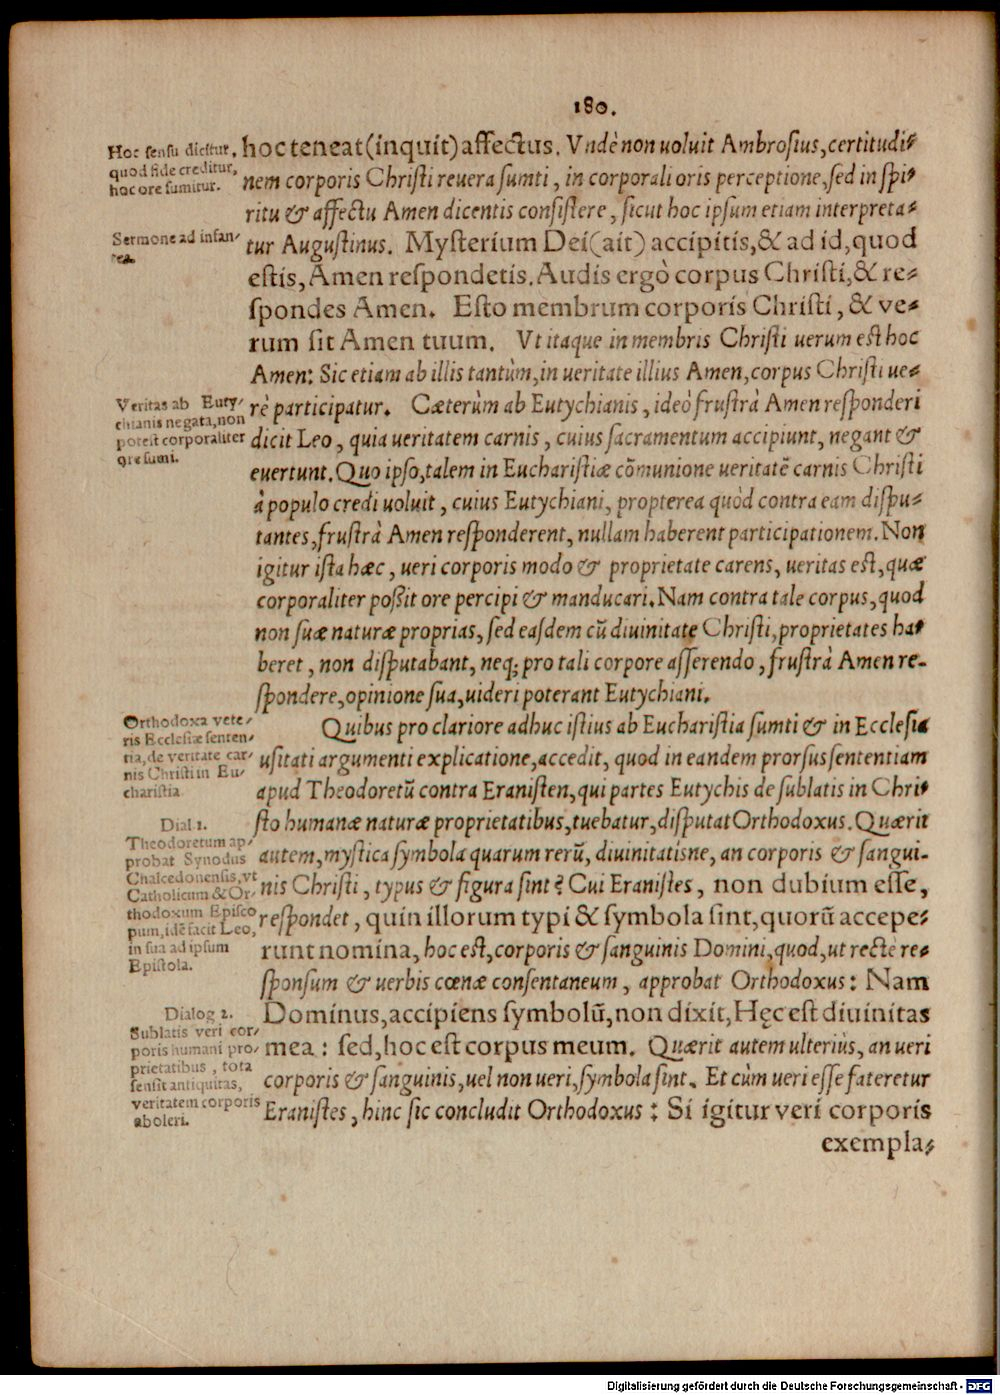 180.
Hoc sensu dicitur,
quod fide creditur,
hoc ore sumitur.
hoc teneat (inquit) affectus. Vndè non uoluit Ambrosius, certitudi-
nem corporis Christi reuera sumti, in corporali oris perceptione, sed in spi-
ritu & affectu Amen dicentis consistere, sicut hoc ipsum etiam interpreta-
Sermone ad infan-
tes.
tur Augustinus. Mysterium Dei (ait) accipitis, & ad id, quod
estis, Amen respondetis. Audis ergò corpus Christi, & re-
spondes Amen. Esto membrum corporis Christi, & ve-
rum sit Amen tuum. Vt itaque in membris Christi uerum est hoc
Amen: Sic etiam ab illis tantùm, in ueritate illius Amen, corpus Christi ue-
Veritas ab Euty-
chianis negata, non
potest corporaliter
ore sumi.
rè participatur. Cæterùm ab Eutychianis, ideò frustrà Amen responderi
dicit Leo, quia ueritatem carnis, cuius sacramentum accipiunt, negant &
euertunt. Quo ipso, talem in Eucharistiæ cõmunione ueritatẽ carnis Christi
à populo credi uoluit, cuius Eutychiani, propterea quòd contra eam dispu-
tantes, frustrà Amen responderent, nullam haberent participationem. Non
igitur ista hæc, ueri corporis modo & proprietate carens, ueritas est, quæ
corporaliter poßit ore percipi & manducari. Nam contra tale corpus, quod
non suæ naturæ proprias, sed easdem cũ diuinitate Christi, proprietates ha-
beret, non disputabant, neq; pro tali corpore asserendo, frustrà Amen re-
spondere, opinione sua, uideri poterant Eutychiani.
Orthodoxa vete-
ris Ecclesiæ senten-
tia, de veritate car-
nis Christi in Eu-
charistia
Quibus pro clariore adhuc istius ab Eucharistia sumti & in Ecclesia
usitati argumenti explicatione, accedit, quod in eandem prorsus sententiam
apud Theodoretũ contra Eranisten, qui partes Eutychis de sublatis in Chri-
sto humanæ naturæ proprietatibus, tuebatur, disputat Orthodoxus. Quærit
Dial 1.
Theodoretum ap-
probat Synodus
Chalcedonensis, vt
Catholicum & Or-
thodoxum Episco
pum, idẽ facit Leo,
in sua ad ipsum
Epistola.
autem, mystica symbola quarum rerũ, diuinitatisne, an corporis & sangui-
nis Christi, typus & figura sint? Cui Eranistes, non dubium esse,
respondet, quin illorum typi & symbola sint, quorũ accepe-
runt nomina, hoc est, corporis & sanguinis Domini, quod, ut rectè re-
sponsum & uerbis cœnæ consentaneum, approbat Orthodoxus: Nam
Dialog 2.
Sublatis veri cor-
poris humani pro-
prietatibus, tota
sensit antiquitas,
veritatem corporis
aboleri.
Dominus, accipiens symbolũ, non dixit, Hęc est diuinitas
mea: sed, hoc est corpus meum. Quærit autem ulteriùs, an ueri
corporis & sanguinis, uel non ueri, symbola sint. Et cùm ueri esse fateretur
Eranistes, hinc sic concludit Orthodoxus: Si igitur veri corporis
exempla-
Digitalisierung gefördert durch die Deutsche Forschungsgemeinschaft - DFG